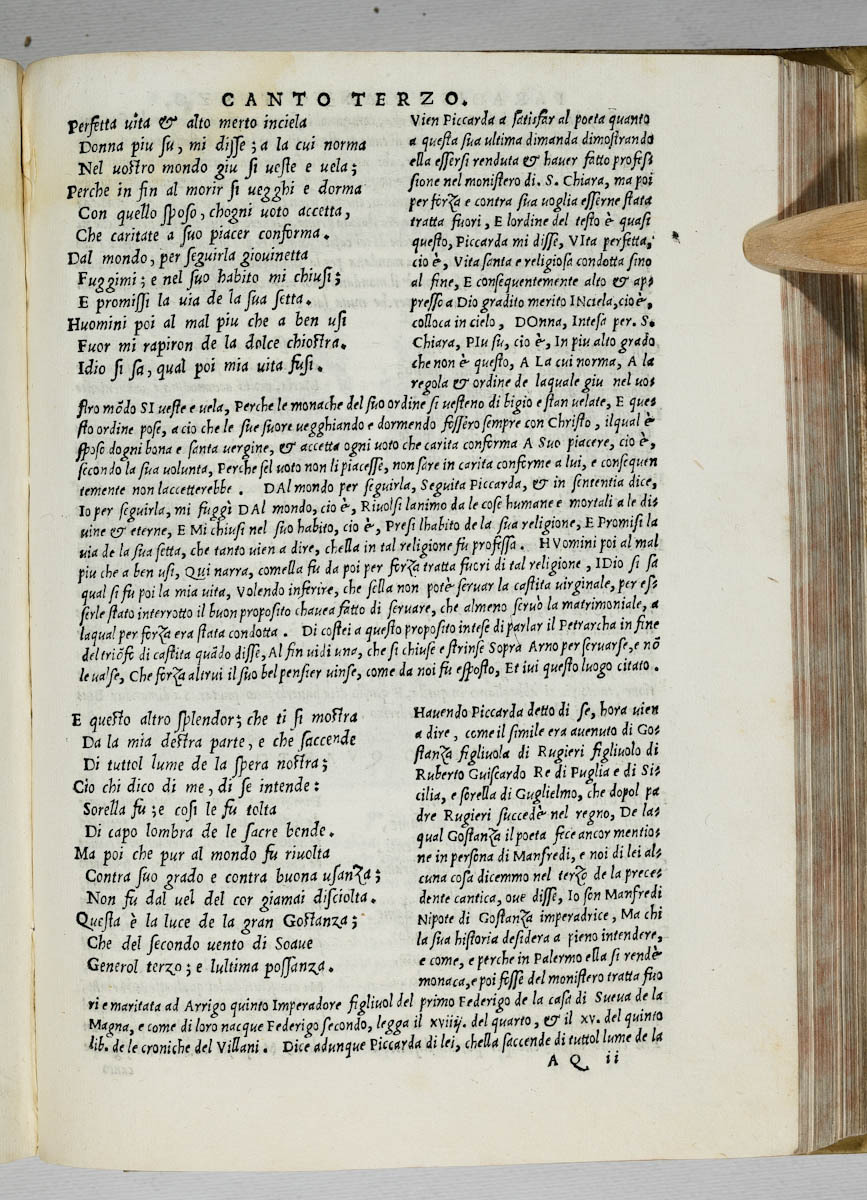 CANTO TERZO.
Perfetta uita & alto merto inciela
Donna piu su, mi disse; a la cui norma
Nel uostro mondo giu si ueste e uela;
Perche in fin al morir si uegghi e dorma
Con quello sposo, chogni uoto accetta,
Che caritate a suo piacer conforma.
Dal mondo, per seguirla giouinetta
Fuggimi; e nel suo habito mi chiusi;
E promissi la uia de la sua setta.
Huomini poi al mal piu che a ben usi
Fuor mi rapiron de la dolce chiostra.
Idio si sa, qual poi mia uita fusi.
Vien Piccarda a satisfar al poeta quanto
a questa sua ultima dimanda dimostrando
ella essersi renduta & hauer fatto profess
sione nel monistero di. S. Chiara, ma poi
per forza e contra sua uoglia esserne stata
tratta fuori, E lordine del testo è quasi
questo, Piccarda mi disse, VIta perfetta,
cio è, Vita santa e religiosa condotta sino
al fine, E consequentemente alto & ap=
presso a Dio gradito merito INciela, cio è,
colloca in cielo, DOnna, Intesa per. S.
Chiara, PIu su, cio è, In piu alto grado
che non è questo, A La cui norma, A la
regola & ordine de laquale giu nel uos=
stro mōdo SI ueste e uela, Perche le monache del suo ordine si uesteno di bigio e stan uelate, E ques=
sto ordine pose, a cio che le sue suore uegghiando e dormendo fossero sempre con Christo, ilqual è
sposo dogni bona e santa uergine, & accetta ogni uoto che carita conforma A Suo piacere, cio è,
secondo la sua volunta, Perche sel uoto non li piacesse, non sare in carita conforme a lui, e consequen
temente non laccetterebbe. DAl mondo per seguirla, Seguita Piccarda, & in sententia dice,
Io per seguirla, mi fuggì DAl mondo, cio è, Riuolsi lanimo da le cose humane e mortali a le di=
uine & eterne, E Mi chiusi nel suo habito, cio è, Presi lhabito de la sua religione, E Promisi la
uia de la sua setta, che tanto uien a dire, chella in tal religione fu professa. HVomini poi al mal
piu che a ben usi, Qui narra, comella fu da poi per forza tratta fuori di tal religione, IDio si sa
qual si fu poi la mia uita, Volendo inferire, che sella non potè seruar la castita uirginale, per es=
serle stato interrotto il buon proposito chauea fatto di seruare, che almeno seruò la matrimoniale, a
laqual per forza era stata condotta. Di costei a questo proposito intese di parlar il Petrarcha in fine
del triōfo di castita quādo disse, Al fin uidi una, che si chiuse e strinse Sopra Arno per seruarse, e nō
le ualse, Che forza altrui il suo bel pensier uinse, come da noi fu esposto, Et iui questo luogo citato.
E questo altro splendor; che ti si mostra
Da la mia destra parte, e che saccende
Di tuttol lume de la spera nostra;
Cio chi dico di me, di se intende:
Sorella fu; e cosi le fu tolta
Di capo lombra de le sacre bende.
Ma poi che pur al mondo fu riuolta
Contra suo grado e contra buona usanza;
Non fu dal uel del cor giamai disciolta.
Questa è la luce de la gran Gostanza;
Che del secondo uento di Soaue
Generol terzo; e lultima possanza.
Hauendo Piccarda detto di se, hora uien
a dire, come il simile era auenuto di Gos=
stanza figliuola di Rugieri figliuolo di
Ruberto Guiscardo Re di Puglia e di Si=
cilia, e sorella di Guglielmo, che dopol pa
dre Rugieri succedè nel regno, De las=
qual Gostanza il poeta fece ancor mentio=
ne in persona di Manfredi, e noi di lei al=
cuna cosa dicemmo nel terzo de la prece=
dente cantica, oue disse, Io son Manfredi
Nipote di Gostanza imperadrice, Ma chi
la sua historia desidera a pieno intendere,
e come, e perche in Palermo ella si rendè
monaca, e poi fosse del monistero tratta fuo
ri e maritata ad Arrigo quinto Imperadore figliuol del primo Federigo de la casa di Sueua de la
Magna, e come di loro nacque Federigo secondo, legga il xviiij. del quarto, & il xv. del quinto
lib. de le croniche del Villani. Dice adunque Piccarda di lei, chella saccende di tuttol lume de la
A Q ii